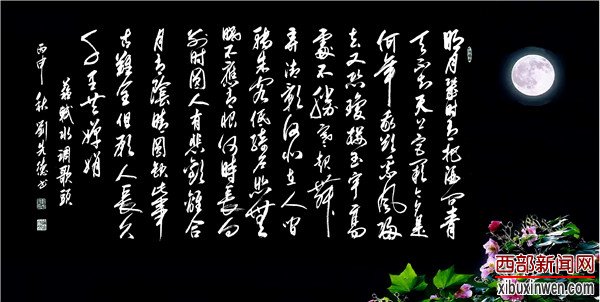 明月幾时有把酒问青
天不知天上宫阙今夕是
何年我欲乘风归
去又恐琼楼玉宇高
處不勝寒起舞
弄清影何似在人间
转朱阁低绮户照無
眠不應有恨何时长向
别时圆人有悲歡離合
月有陰晴圆缺此事
古難全但願人長久
千里共嬋娟
蘇軾水调歌頭
丙申秋劉德书
西部新闻网
xibuxinwen.com